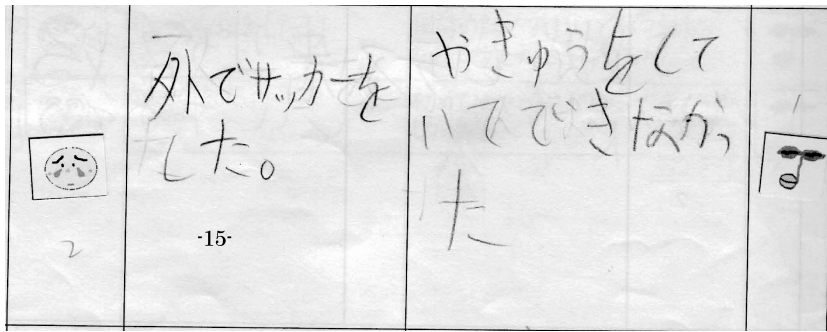 外でサッカーを
した。
やきゅうをして
いてできなかっ
た
2
-15-